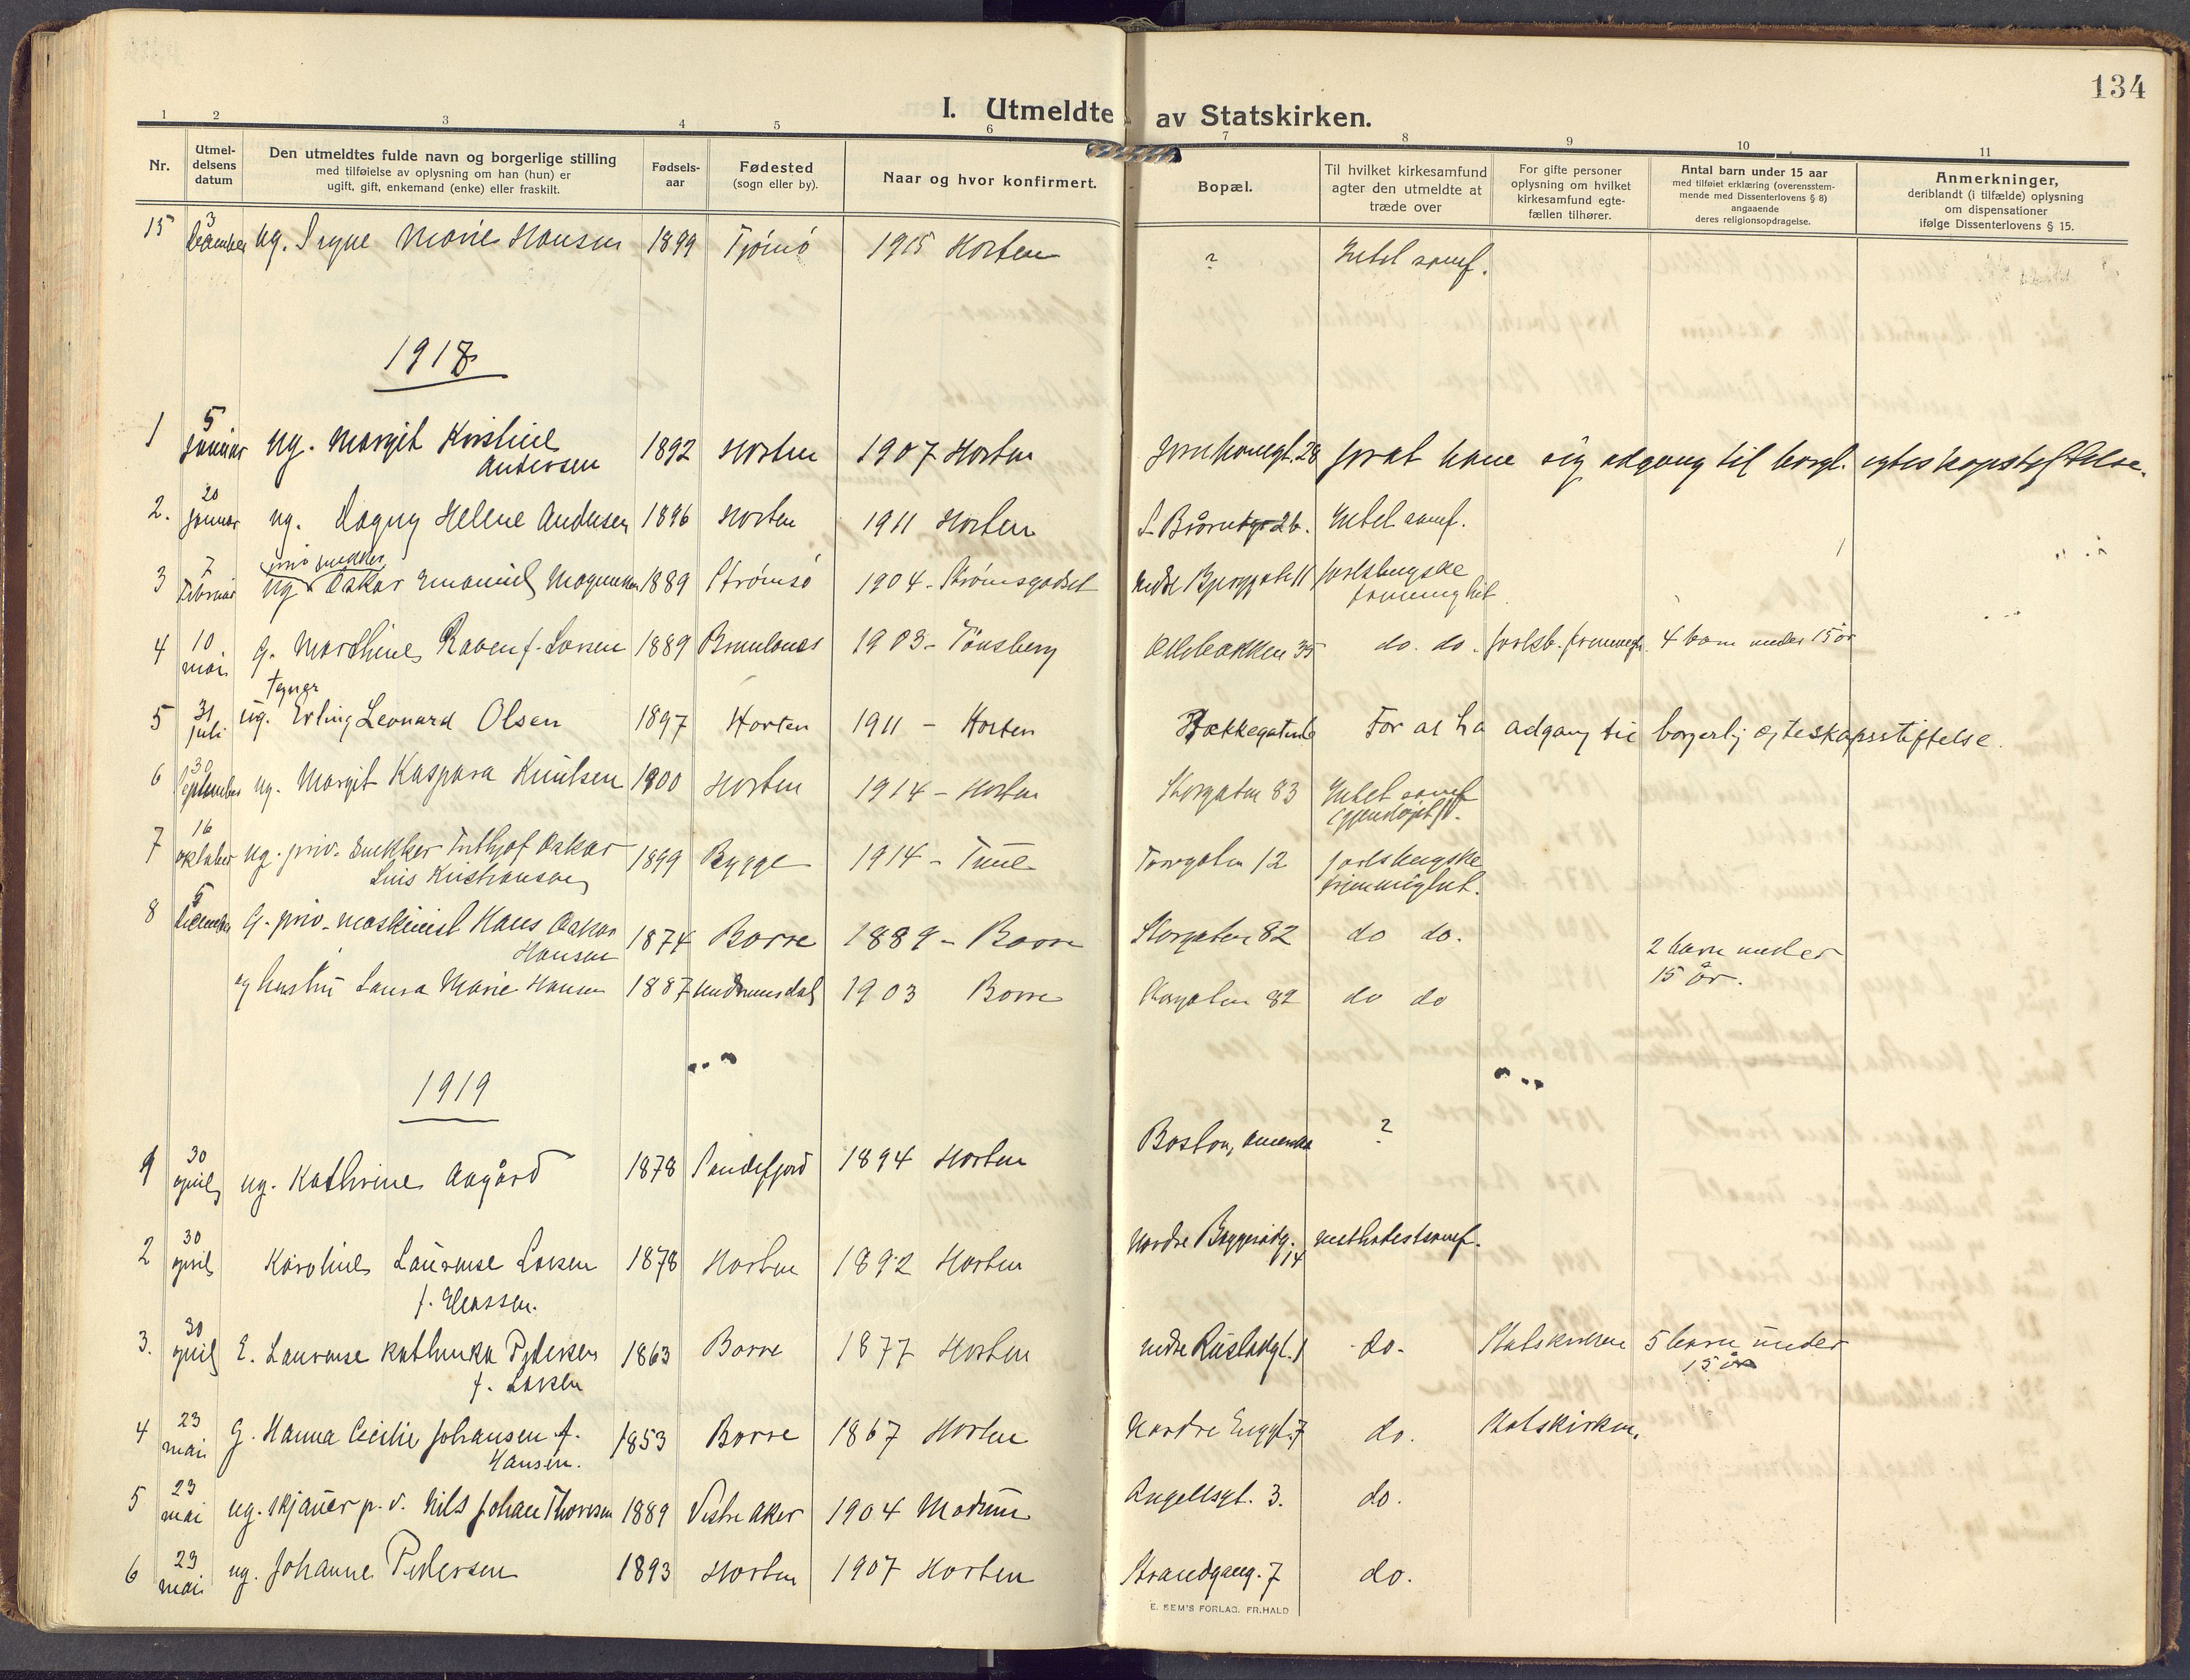 134
I. Utmeldte av Statskirken.
1 2 3 4 5 6 7 8 9 10 11
Nr.
Utmel-
delsens
datum
Den utmeldtes fulde navn og borgerlige stilling
med tilføielse av oplysning om han (hun) er
ugift, gift, enkemand (enke) eller fraskilt.
Fødsels-
aar
Fødested
(sogn eller by).
Naar og hvor konfirmert.
Bopæl.
Til hvilket kirkesamfund
agter den utmeldte at
træde over
For gifte personer
oplysning om hvilket
kirkesamfund egte-
fællen tilhører.
Antal barn under 15 aar
med tilføiet erklæring (overensstem-
mende med Dissenterlovens § 8)
angaaende
deres religionsopdragelse.
Anmerkninger,
deriblandt (i tilfælde) oplysning
om dispensationer
ifølge Dissenterlovens § 15.
15 3 December ug. Signe Marie Hansen 1899 Tjømø 1915 Horten ? Intet samf.
1918
1 5 Januar ug. Margit Kristine 1892 Horten 1907 Horten 28 forat have sig adgang til borgl. egteskapsstiftelse.
Andersen
2. 20 Januar ug. Dagny Helene Andersen 1896 Horten 1911 Horten Intet samf.
priv snekker
3 7 Februar ug Oskar Emanuel Magnussen 1889 Strømsø 1904 - Strømsgodset Nedre Bjerggate 11 Jarlsbergske
frimenighet
4 10 mai g. Marthine Raven f. Larsen 1889 Brunlanes 1903 - Tønsberg 35 do. do. Jarlsb. frimenigh. 4 barn under 15 år
Tegner
5 31 juli ug. Erling Leonard Olsen 1897 Horten 1911 - Horten For at ha adgang til borgerlig egteskapsstiftelse.
6 30 September ug. Margit Kaspara Knutsen 1900 Horten 1914 - Horten Storgaten 83 Intet samf
7 16 oktober ug. priv. snekker Frithjof Oskar 1899 Rygge 1914 - Tune Torvgaten 12 Jarlsbergske
Kristiansen
frimenighet.
8 5 December G. priv. maskinist Hans Oskar 1874 Borre 1889 - Borre Storgaten 82 do do. 2 barn under
Hansen
15 år.
og hustru Laura Marie Hansen 1887 Undrumsdal 1903 Borre Storgaten 82 do do
1919
1 30 april ug. Kathrine Aagård 1878 Sandefjord 1894 Horten Boston, Amerika ?
2 30 april Karoline Laurense Larsen 1878 Horten 1892 Horten Nordre 14 methodistsamf.
f. Eliassen.
3. 30 april E. Laurense Kathinka Pedersen 1863 Borre 1877 Horten nedre Rustadgt. 1 do. Statskirken 5 barn under
f. Larsen
15 år
4 23 mai G. Hanna Cecilie Johansen f. 1853 Borre 1867 Horten Nordre Enggt. 7 do. Statskirken.
Hansen.
5 23 mai ug. skjauer p. v. Nils Johan Thoresen 1889 Vestre Aker 1904 Modum Angellsgt. 3. do.
6 23 mai ug. Johanne Pedersen 1893 Horten 1907 Horten Strandgang. 7 do.
E. SEM'S FORLAG. FR.HALD